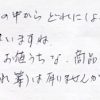 の中から どれに しよ
いますね
お値うちな、商品
れ筆)は有りませんか